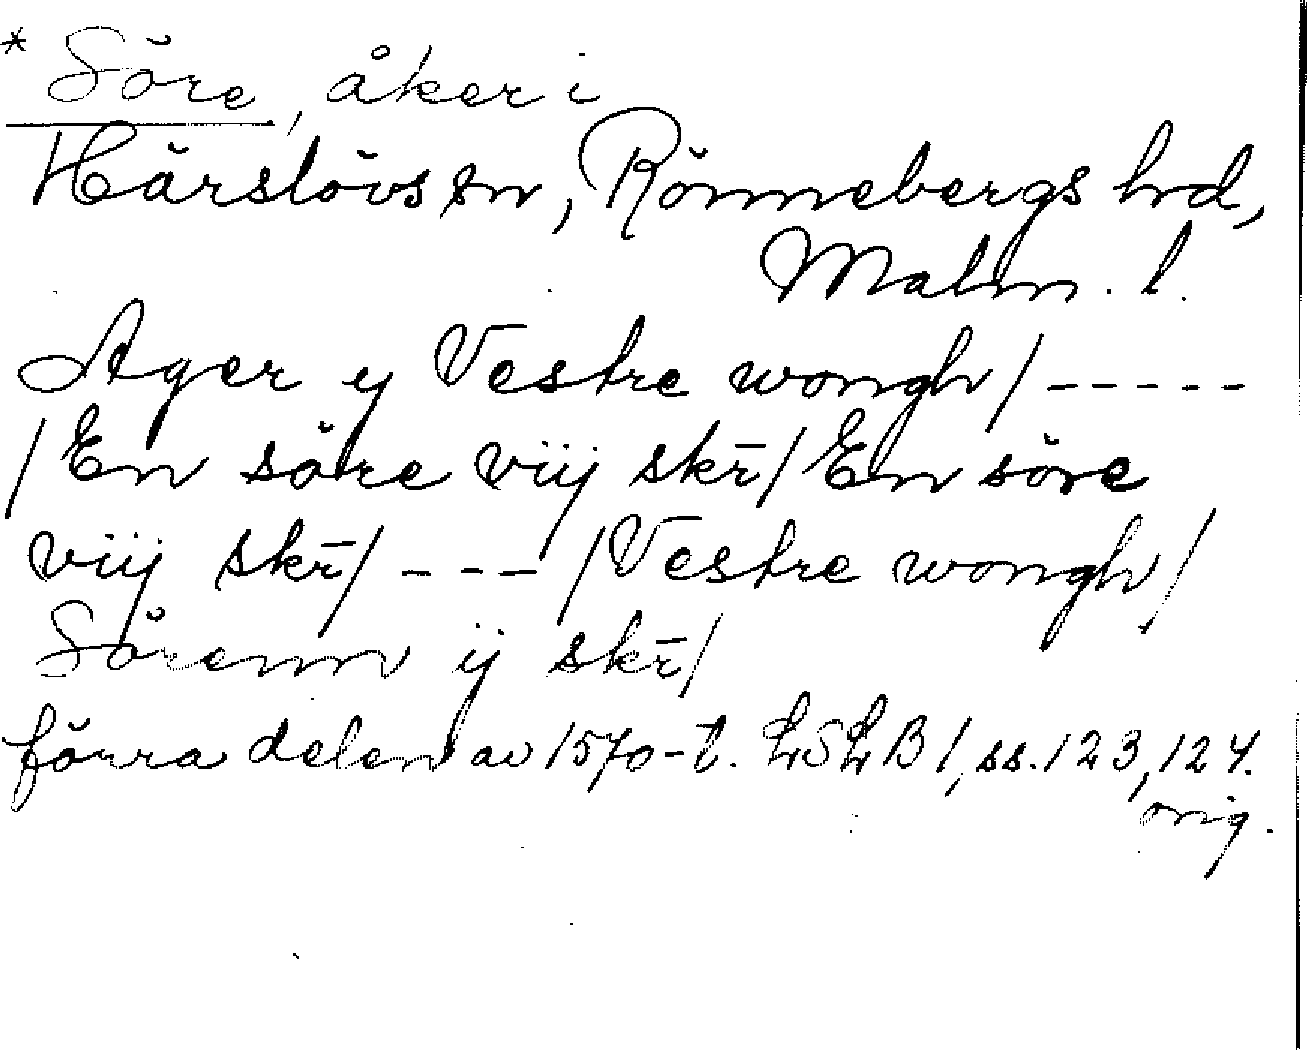 * Söre, åker i
Härslövs sn, Rönnebergs hrd,
Malm. l.
Ager y Vestre wongh/ -----
/En söre viij skr̄/ En söre
viij skr̄/ --- /Vestre wongh/
Sörenn ij skr̄/
förra delen av 1570-t. LSLB 1, ss. 123, 124.
orig.